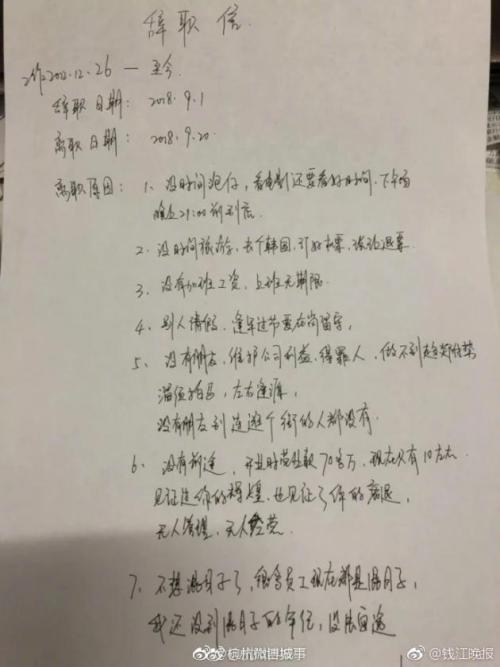 辞职信
工作2012.12.26 — 至今
辞职日期: 2018.9.1
离职日期: 2018.9.20
离职原因: 1、没时间泡仔,看电影还要看好时间,下午场
晚上21:00前到店
2、没时间旅游,去个韩国,订好机票,
3、没有加班工资,上班无期限
4、别人请假,逢年过节要在岗留守,
5、没有朋友,维护公司利益,得罪人,做不到趋炎附势
溜须拍马,左右逢源,
没有朋友到连逛个街的人都没有.
6、没有前途,开业时营业额70多万,现在只有10左右
见证过你的辉煌,也见证了你的衰退,
无人管理,无人经营
7、不想混日子了,很多员工现在都是混日子,
我还没到混日子的年纪,
@杭州城事
@钱江晚报